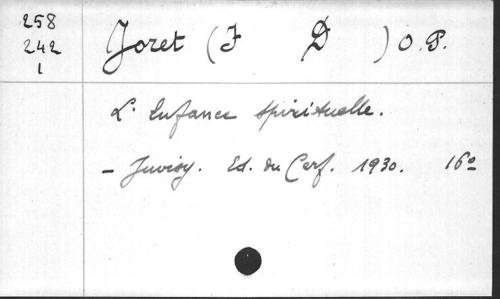 258
242
1
Joret (F D ) O.P.
L' Enfance spirituelle.
- Juvisy. Ed. du Cerf. 1930. 16º